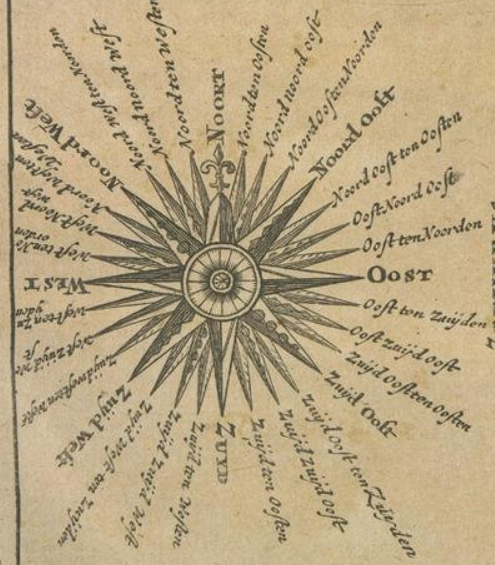 NOORT
Noord ten Oosten
Noord noord oost
Noord Oosten Noorden
Noord Oost
Noord Oost ten Oosten
Oost Noord Oost
Oost ten Noorden
OOST
Oost ten Zuijden
Oost Zuijd Oost
Zuijd Oosten Oosten
Zuijd Oost
Zuijd Oost ten Zuijden
Zuijd Zuijd Oost
Zuijd ten Oosten
ZUYD
Zuijd ten Westen
Zuijd Zuijd West
Zuijd West ten Zuijden
Zuyd West
Zuijdwesten Weste
West Zuijd We
West ten Zu
yden
WEST
West ten No
orden
West Noord
west
Noord Westen
Westen
Noord West
Noord Westen Noorden
Noord Noord West
Noord ten Westen